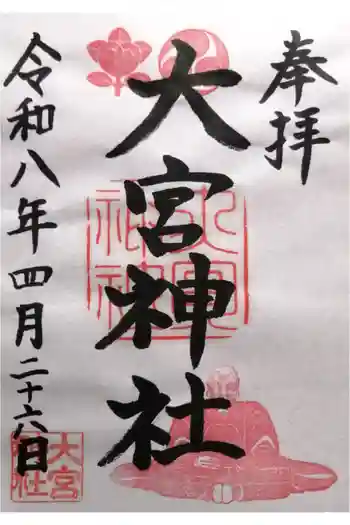 奉拝
大宮神社
令和八年四月二十六日
大宮神社
大宮
神社